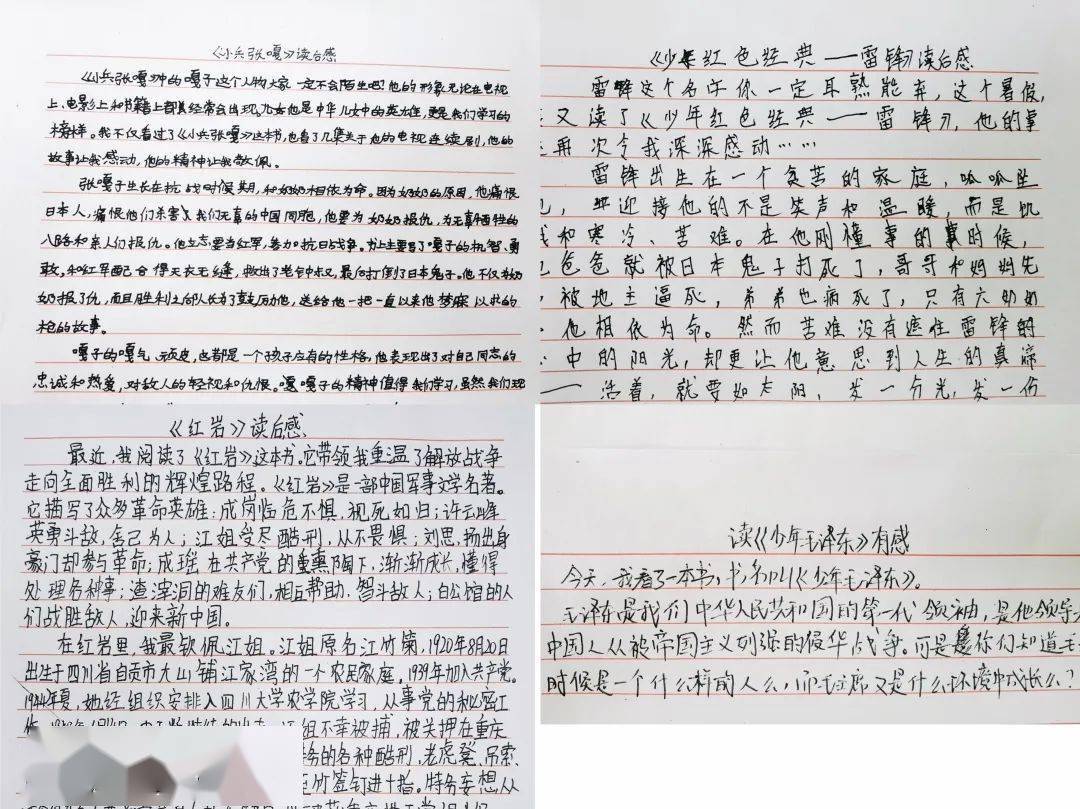 《小兵张嘎》读后感
《小兵张嘎》中的嘎子这个人物大家一定不会陌生吧!他的形象无论在电视
上、电影上和书籍上都经常会出现,他是中华儿女中的英雄,更是我们学习的
榜样。我不仅看过了《小兵张嘎》这本书,也看了几集关于他的电视连续剧,他的
故事让我感动,他的精神让我敬佩。
张嘎子生长在抗战时候期,和奶奶相依为命。因为奶奶的原因,他痛恨
日本人,痛恨他们杀害了我们无辜的中国同胞,他要为奶奶报仇,为无辜牺牲的
八路和亲人们报仇。他立志要当红军,参加抗日战争。书上主要写了嘎子的机智、勇
敢,和红军配合得天衣无缝,救出了老钟叔,最后打倒了日本鬼子。他不仅为奶
奶报了仇,而且胜利之后队长为了鼓励他,送给他一把一直以来他梦寐以求的
枪的故事。
嘎子的嘎气、顽皮,也都是一个孩子应有的性格,他表现出了对自己同志的
忠诚和热爱,对敌人的轻视和仇恨。嘎子的精神值得我们学习,虽然我们现
《少年红色经典——雷锋》读后感
雷锋这个名字你一定耳熟能详,这个暑假,
又读了《少年红色经典——雷锋》,他的事
再次令我深深感动……
雷锋出生在一个贫苦的家庭,呱呱坠
,迎接他的不是笑声和温暖,而是饥
和寒冷、苦难。在他刚懂事的时候,
爸爸就被日本鬼子打死了,哥哥和妈妈先
被地主逼死,弟弟也病死了,只有六奶奶
他相依为命。然而苦难没有遮住雷锋的
中的阳光,却更让他意思到人生的真谛
——活着,就要如太阳,发一分光,发一份
《红岩》读后感
最近,我阅读了《红岩》这本书。它带领我重温了解放战争
走向全面胜利的辉煌路程。《红岩》是一部中国军事文学名著。
它描写了众多革命英雄:成岗临危不惧,视死如归;许云峰
英勇斗敌,舍己为人;江姐受尽酷刑,从不畏惧;刘思扬出身
豪门却参与革命;成瑶在共产党的熏陶下,渐渐成长,懂得
处理各种事;渣滓洞的难友们,相互帮助,智斗敌人;白公馆的人
们战胜敌人,迎来新中国。
在红岩里,我最钦佩江姐。江姐原名江竹筠,1920年8月20日
出生于四川省自贡市大山铺江家湾的一个农民家庭。1939年加入共产党。
1944年夏,她经组织安排入四川大学农学院学习,从事党的秘密工
江姐不幸被捕,被关押在重庆
特务的各种酷刑,老虎凳、吊索、
竹签钉进十指。特务妄想从
读《少年毛泽东》有感
今天,我看了一本书,书名叫《少年毛泽东》。
毛泽东是我们中华人民共和国的第一代领袖,是他领导
中国人从被帝国主义列强的侵华战争。可是你们知道毛
时候是一个什么样的人么,而毛主席又是什么环境中成长么?